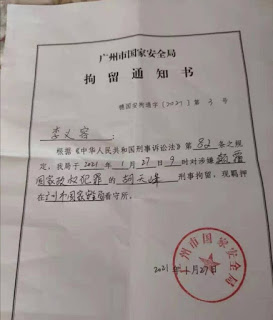 广州市国家安全局
拘留通知书
穗国安拘通字〔2021〕第3号
李义容:
根据《中华人民共和国刑事诉讼法》第82条之规
定,我局于2021年1月27日9时对涉嫌颠覆
国家政权犯罪的胡天峰刑事拘留,现羁押
在广州市国家安全局看守所。
2021年1月27日
广州市国家安全局